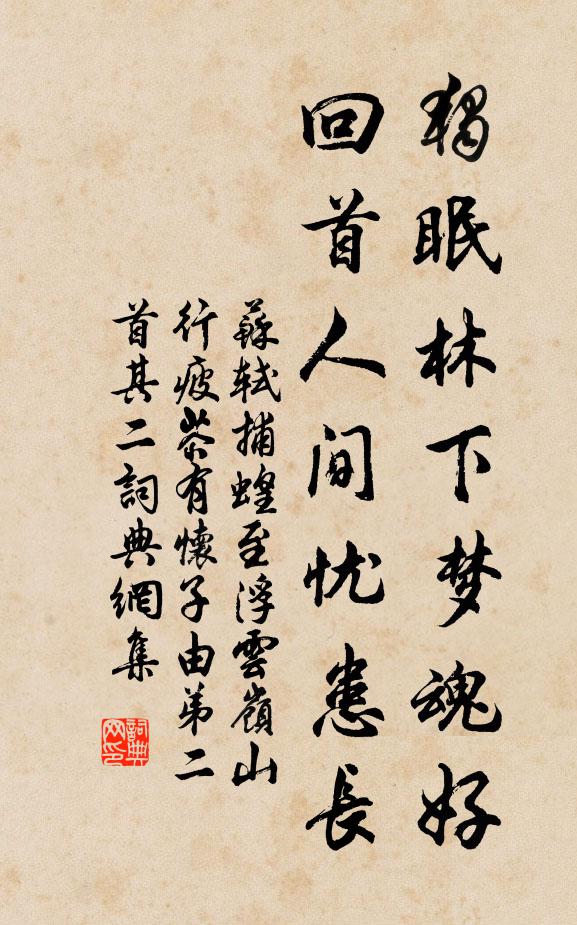 獨眠林下梦魂好
回首人间忧患長
蘇軾捕蝗至浮雲嶺山
行疲苶有懷子由弟二
首其二詞典網集
詞典
网印